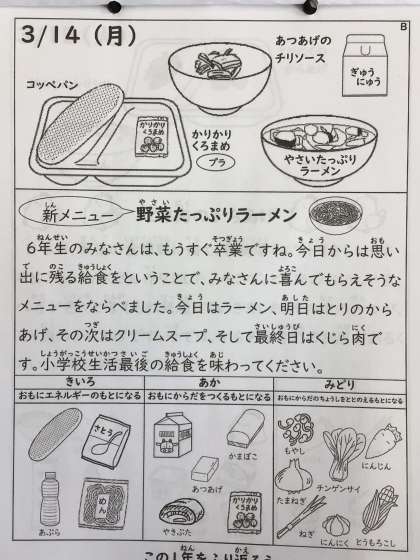 3/14（月）
B
コッペパン
かりかり
くろまめ
かりかり
くろまめ
プラ
あつあげの
チリソース
ぎゅう
にゅう
やさいたっぷり
ラーメン
新メニュー 野菜たっぷりラーメン
しん や さい
６年生のみなさんは、もうすぐ卒業ですね。今日からは思い
ねんせい そつぎょう きょう おも
出に残る給食をということで、みなさんに喜んでもらえそうな
で のこ きゅうしょく よろこ
メニューをならべました。今日はラーメン、明日はとりのから
きょう あした
あげ、その次はクリームスープ、そして最終日はくじら肉で
つぎ さいしゅうび にく
す。小学校生活最後の給食を味わってください。
しょうがっこうせいかつさいご きゅうしょく あじ
きいろ
おもにエネルギーのもとになる
さとう
あぶら
めん
あか
おもにからだをつくるもとになる
かまぼこ
あつあげ
やきぶた
かりかり
くろまめ
みどり
おもにからだのちょうしをととのえるもとになる
もやし
にんじん
チンゲンサイ
たまねぎ
ねぎ
にんにく
とうもろこし
この1年をふり返ろう
かえ